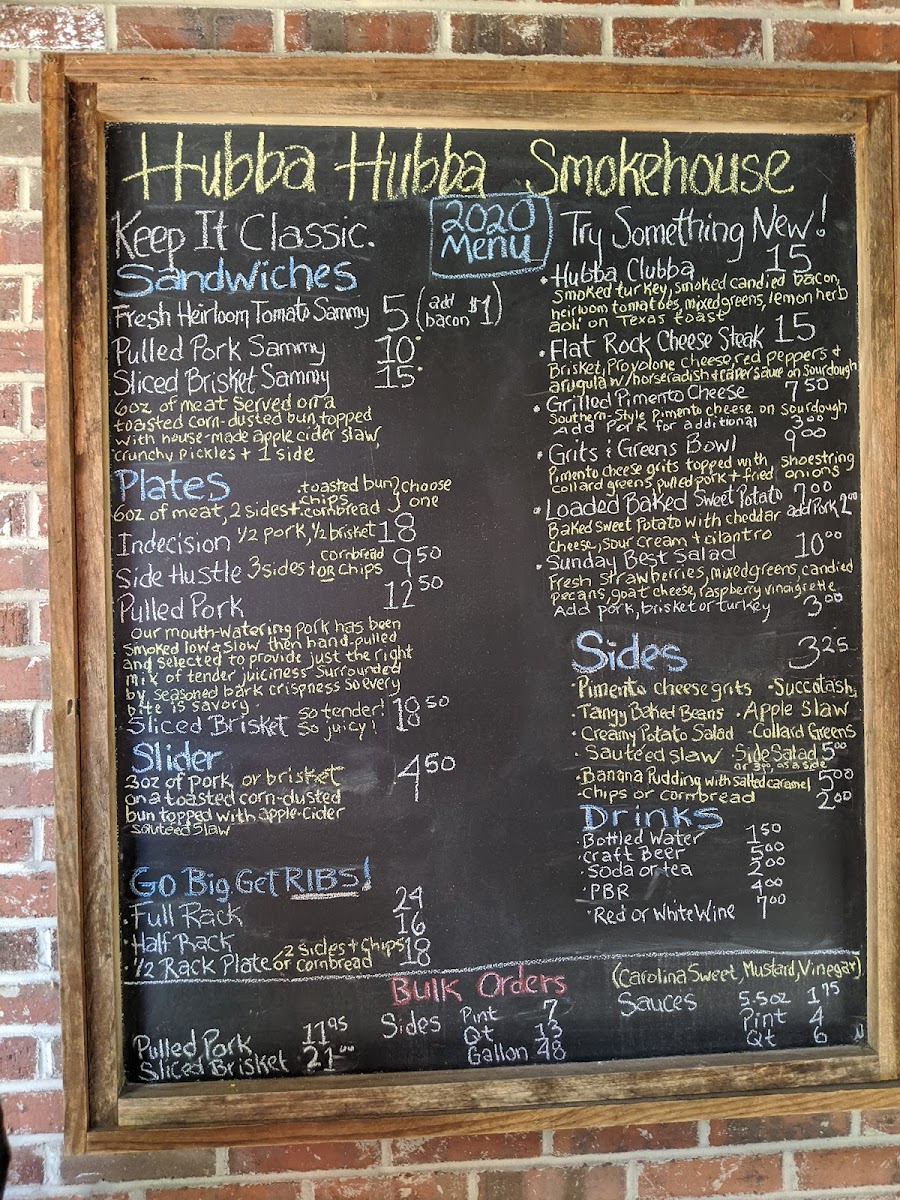 Hubba Hubba Smokehouse
2020 Menu
Keep It Classic.
Sandwiches
Fresh Heirloom Tomato Sammy 5 (add bacon $1)
Pulled Pork Sammy 10
Sliced Brisket Sammy 15
6oz of meat served on a
toasted corn-dusted bun, topped
with house-made apple cider slaw,
crunchy pickles + 1 side
Plates
6oz of meat, 2 sides + toasted bun chips cornbread } choose one
Indecision 1/2 pork, 1/2 brisket 18
Side Hustle 3 sides + cornbread OR chips 950
Pulled Pork 1250
Our mouth-watering pork has been
smoked low & slow then hand-pulled
and selected to provide just the right
mix of tender juiciness surrounded
by seasoned bark crispness so every
bite is savory.
Sliced Brisket so tender! so juicy! 1850
Slider 450
3oz of pork or brisket
on a toasted corn-dusted
bun topped with apple-cider
sautéed slaw
Go Big, Get RIBS!
• Full Rack 24
• Half Rack 16
• 1/2 Rack Plate - 2 sides + chips or cornbread 18
Try Something New!
• Hubba Clubba 15
Smoked turkey, smoked candied bacon,
heirloom tomatoes, mixed greens, lemon herb
aoli on Texas toast
• Flat Rock Cheese Steak 15
Brisket, Provolone cheese, red peppers +
arugula w/ horseradish + caper sauce on sourdough
• Grilled Pimento Cheese 750
Southern-Style pimento cheese on sourdough
Add Pork for additional 300
• Grits & Greens Bowl 900
Pimento cheese grits topped with shoestring
collard greens, pulled pork + fried onions
• Loaded Baked Sweet Potato 700 add Pork 200
Baked Sweet Potato with cheddar
cheese, sour cream + cilantro
• Sunday Best Salad 1000
Fresh strawberries, mixed greens, candied
pecans, goat cheese, raspberry vinaigrette
Add pork, brisket or turkey 300
Sides 325
• Pimento cheese grits • Succotash
• Tangy Baked Beans • Apple Slaw
• Creamy Potato Salad • Collard Greens
• Sautéed slaw • Side Salad 500
or 300 as a side
• Banana Pudding with salted caramel 500
• Chips or cornbread 200
Drinks
• Bottled Water 150
• Craft Beer 500
• Soda or tea 200
• PBR 400
• Red or White Wine 700
Bulk Orders
Pulled Pork 1195
Sliced Brisket 2100
Sides Pint 7
Qt 13
Gallon 48
(Carolina Sweet, Mustard, Vinegar)
Sauces 5.5oz 175
Pint 4
Qt 6